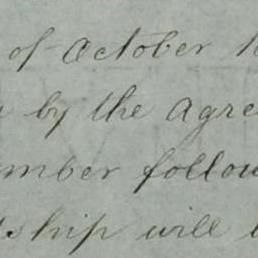 of October
by the Agre
mber follow
ship will